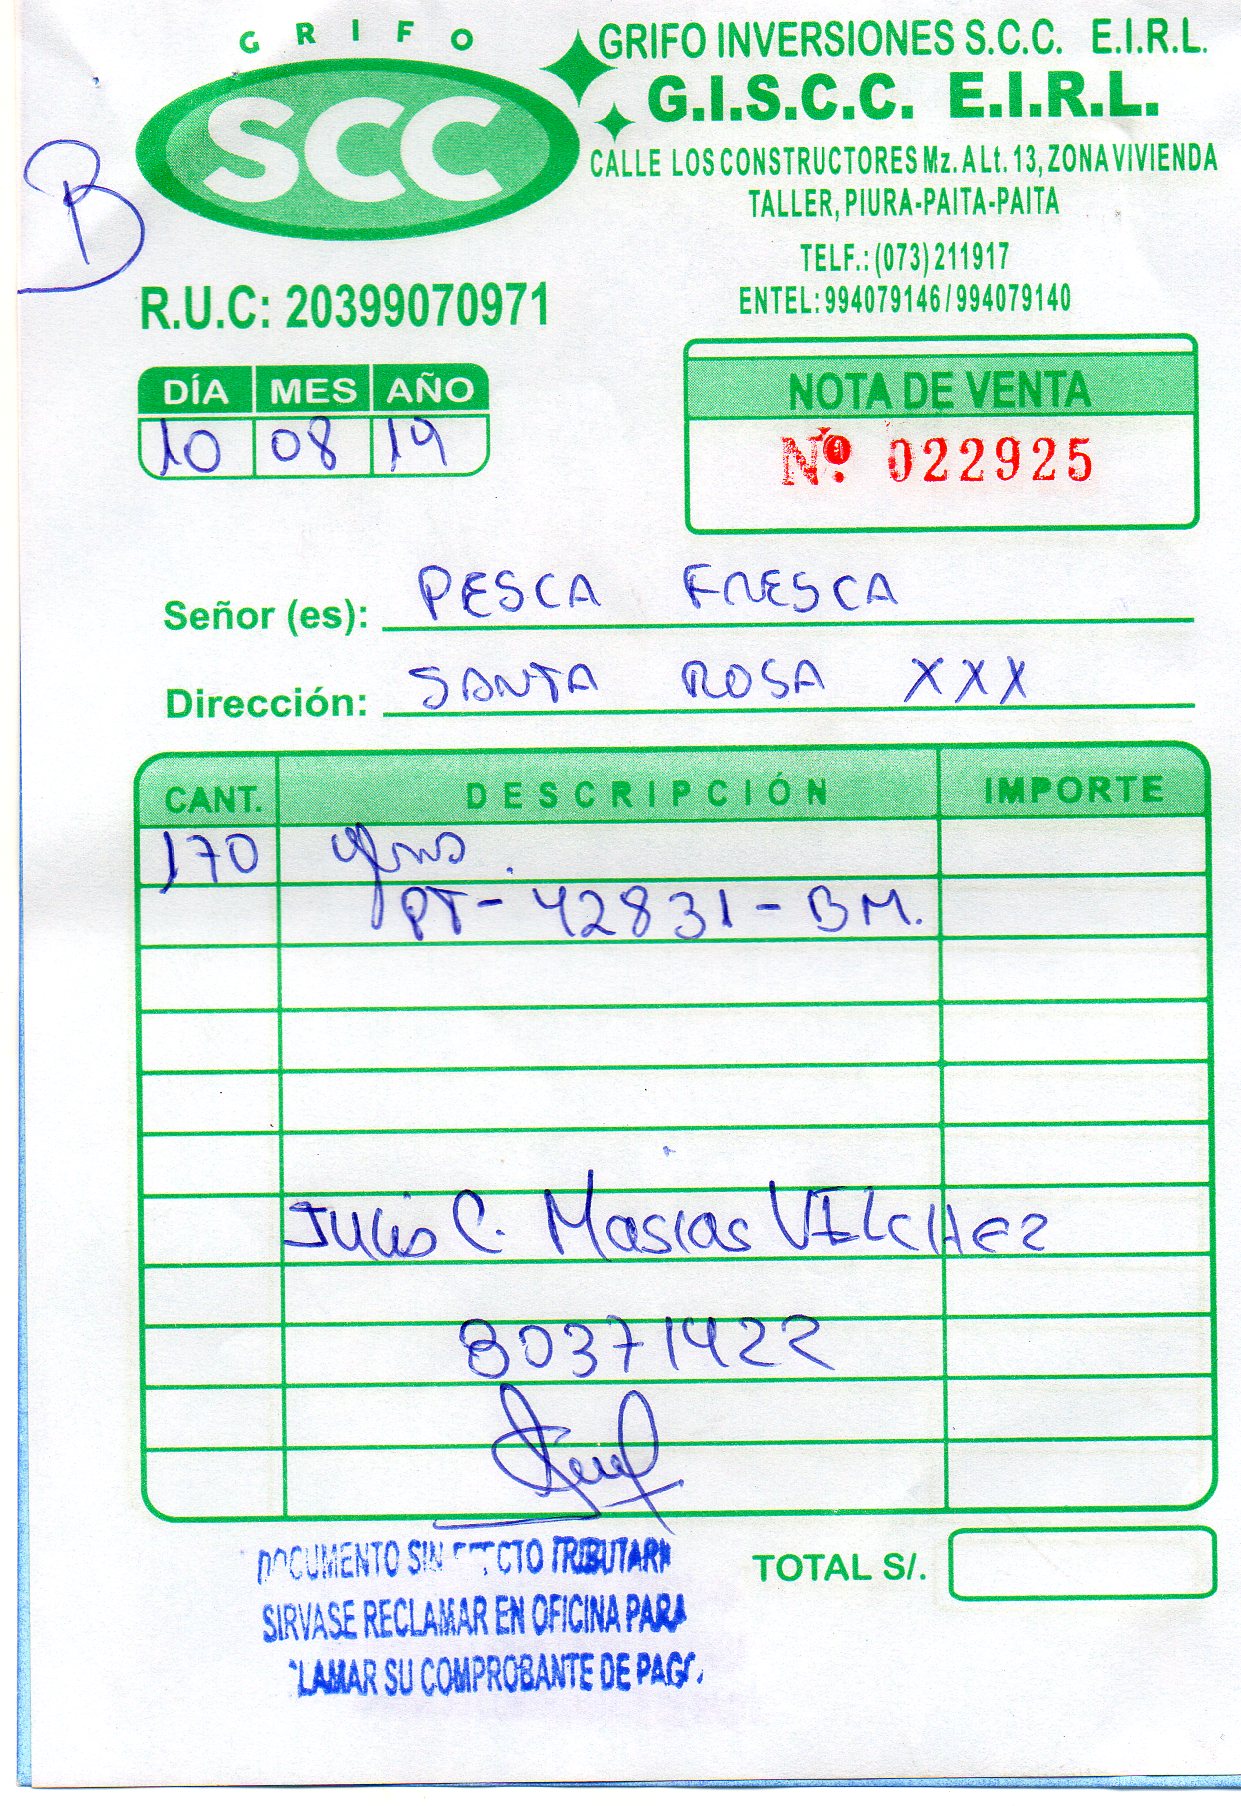 GRIFO
SCC
GRIFO INVERSIONES S.C.C. E.I.R.L.
G.I.S.C.C. E.I.R.L.
CALLE LOS CONSTRUCTORES Mz. A Lt. 13, ZONA VIVIENDA
TALLER, PIURA-PAITA-PAITA
TELF.: (073) 211917
ENTEL: 994079146 / 994079140
B
R.U.C: 20399070971
DÍA MES AÑO
10 08 19
NOTA DE VENTA
Nº 022925
Señor (es): PESCA FRESCA
Dirección: SANTA ROSA XXX
CANT. DESCRIPCIÓN IMPORTE
170
PT-42831-BM.
Julio C. Masias VILCHEZ
80371422
DOCUMENTO SIN EFECTO TRIBUTARI
SIRVASE RECLAMAR EN OFICINA PARA
LAMAR SU COMPROBANTE DE PAGO.
TOTAL S/.